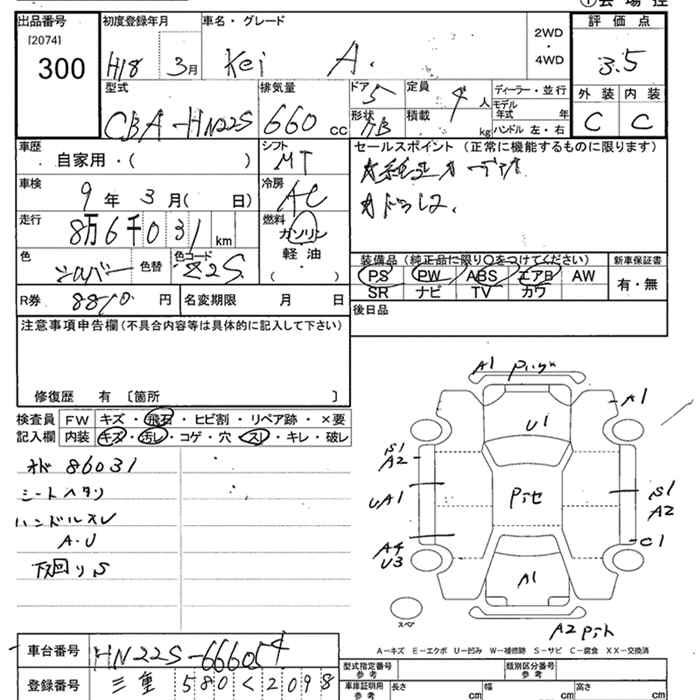 出品番号 初度登録年月 車名・グレード
[2074] 2WD
・
4WD
評価点
300 H18 3月 Kei A. 3.5
型式 排気量 ドア 定員 ディーラー・並行 外装 内装
CBA-HN22S 660 CC 5 4人 モデル年式 年
形状 積載 kg ハンドル 左・右 C C
車歴 シフト セールスポイント (正常に機能するものに限ります)
自家用・( ) MT
車検 冷房
9年 3月( 日) AC
走行 燃料
8万6千031 km ガソリン
軽油
( )
色 色替 色コード
シルバー Z2S
装備品 (純正品に限り○をつけてください) 新車保証書
PS PW ABS エアB AW 有・無
SR ナビ TV カワ
R券 8810円 名変期限 月 日
後日品
注意事項申告欄(不具合内容等は具体的に記入して下さい)
修復歴 有 〔箇所 〕
検査員 FW キズ・飛石・ヒビ割・リペア跡・×要
記入欄 内装 キズ・汚レ・コゲ・穴・スレ・キレ・破レ
86031
シートヘタリ
ハンドルスレ
A・U
下回りS
A1
A1
U1
S1
A2
UA1
Pit
S1
A2
A4
U3
C1
A1
スペア
A2
A-キズ E-エクボ U-凹み W-補修跡 S-サビ C-腐食 XX-交換済
車台番号 HN22S-666054
登録番号 三重 580 く 2098
型式指定番号 参考 類別区分番号 参考
車庫証明用 参考 長さ cm 幅 cm 高さ cm